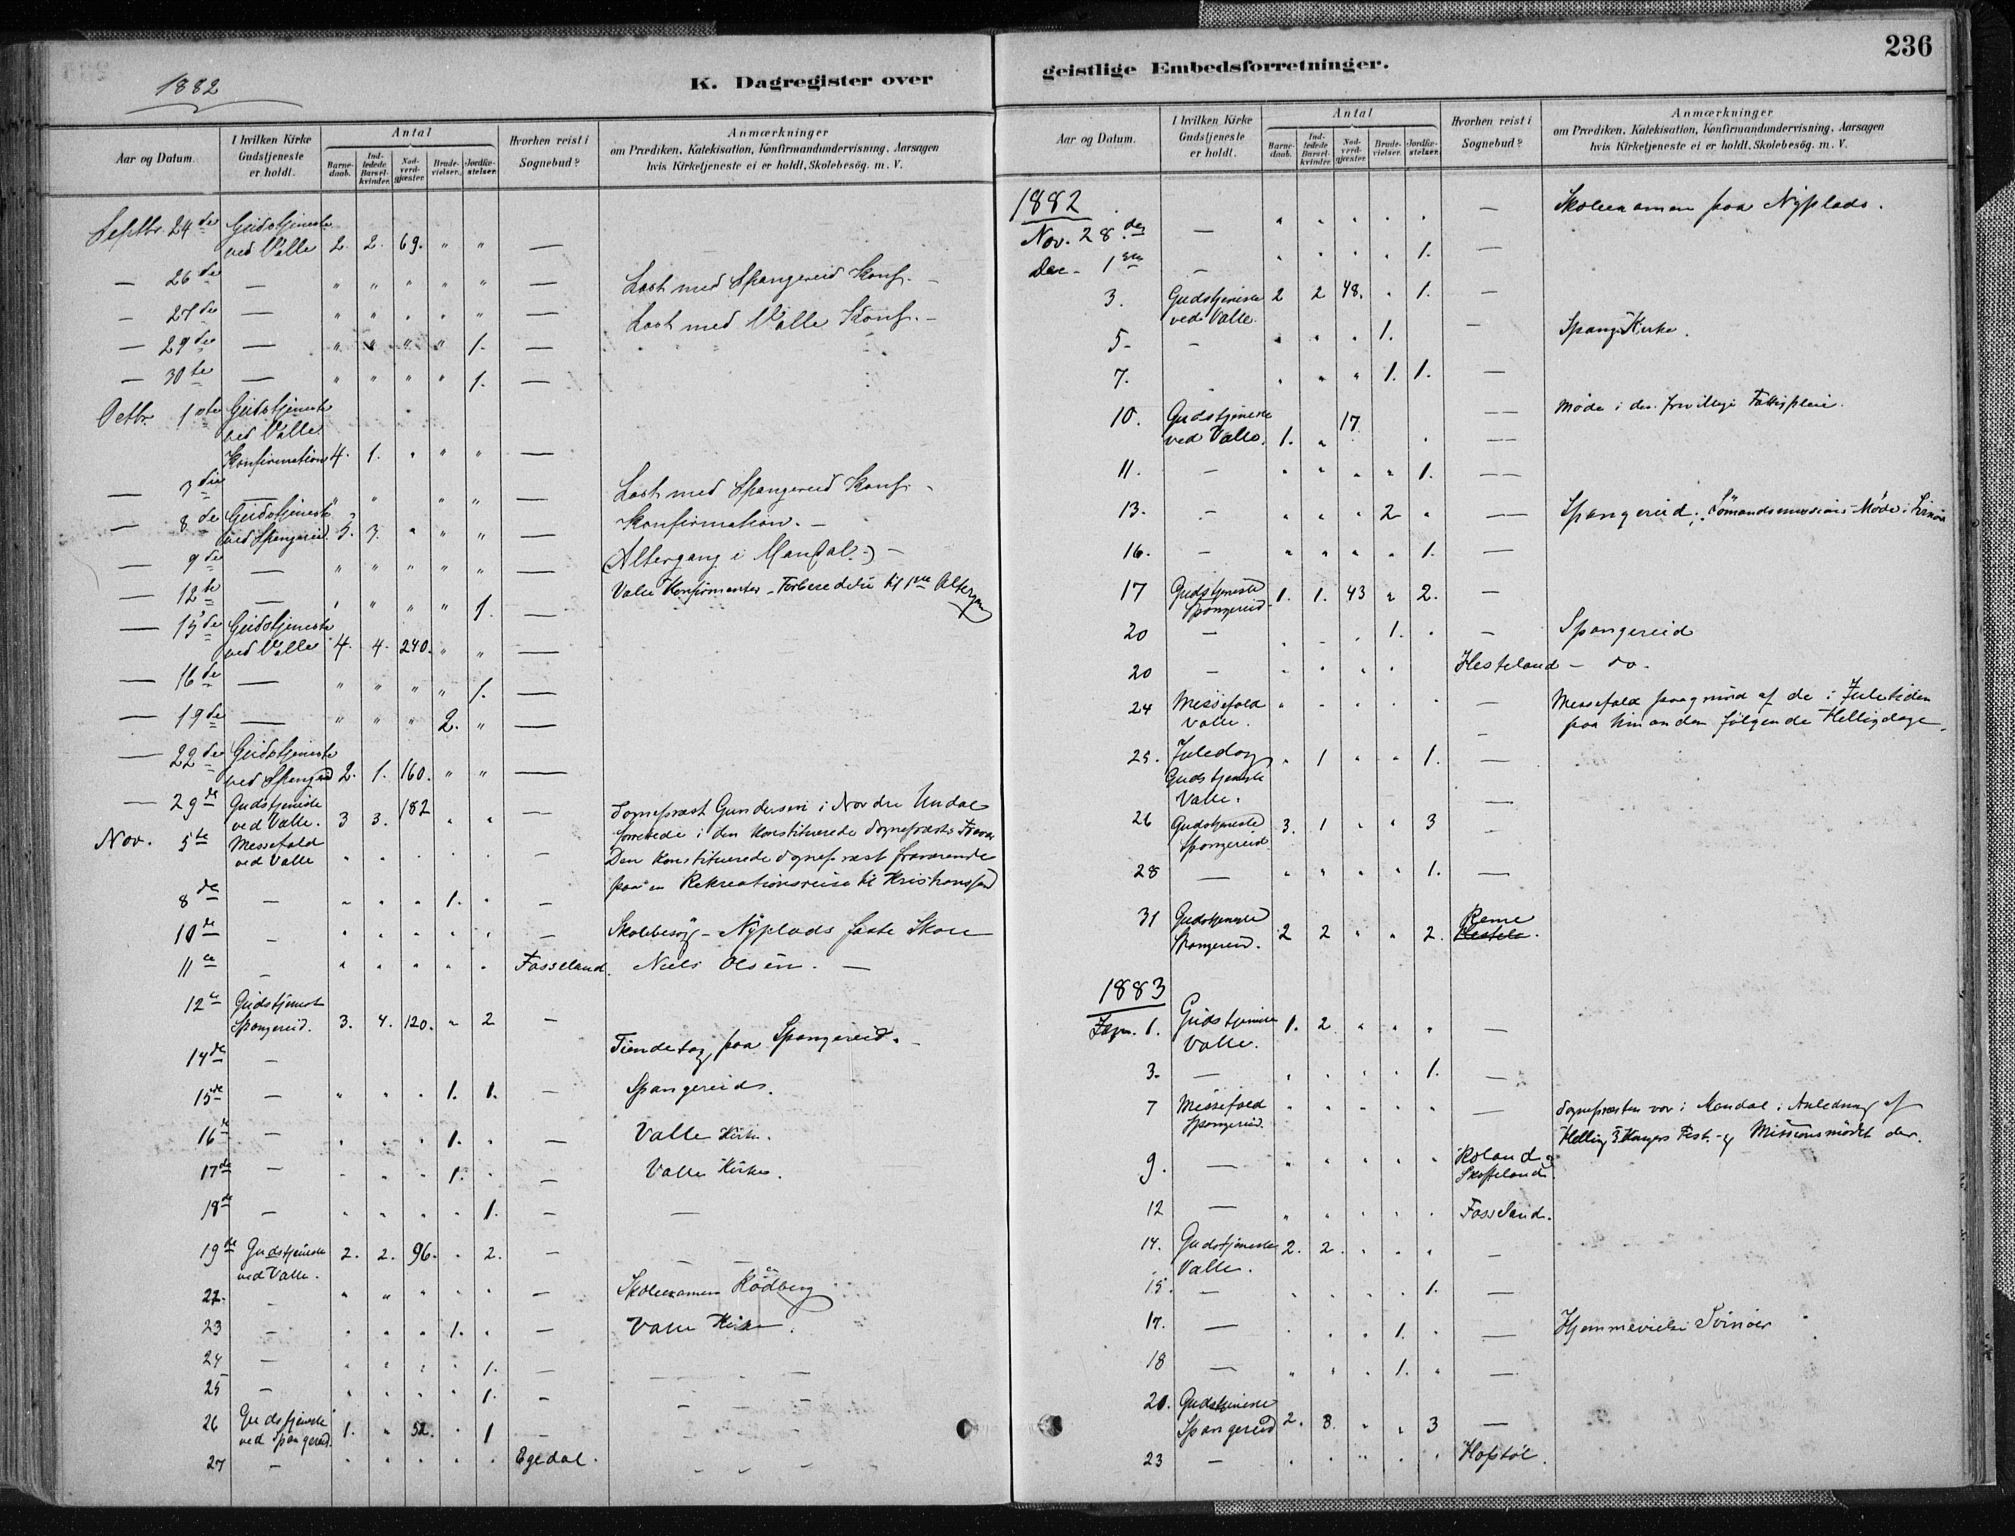 236
1882
K. Dagregister over
Aar og Datum.
I hvilken Kirke Gudstjeneste er holdt.
Antal
Barnedaab.
Indledede Barselkvinder.
Nadverdgjæster.
Brudevielser.
Jordfæstelser.
Hvorhen reist i Sognebud?
Anmærkninger
om Prædiken, Katekisation, Konfirmandundervisning, Aarsagen
hvis Kirketjeneste ei er holdt, Skolebesög. m. V.
Septbr. 24de Gudstjeneste
ved Valle 2. 2. 69. " " —
— 26de — " " " " " — Læst med Spangereid Konf. —
— 27de — " " " " " — Læst med Valle Konf. —
— 29de — " " " " 1. —
— 30te — " " " " 1. —
Octbr. 1ste Gudstjeneste
ved Valle
Konfirmation 4. 1. " " " —
— 3die — " " " " — Læst med Spangereid Konf. —
— 8de Gudstjeneste
ved Spangereid 3. 3. " " " — Konfirmation. —
— 9de — " " " " " — (Altergang i Mandal.) —
— 12te — " " " " 1. — Valle Konfirmanter
— 15de Gudstjeneste
ved Valle 4. 4. 240. " " —
— 16de — " " " " 1. —
— 19de — " " " 2. " —
— 22de Gudstjeneste
ved Spangereid 2. 1. 160. " " —
— 29de Gudstjeneste
ved Valle. 3 3. 182 " " — Sognepræst Gundersen i Nordre Undal
forrettede i den konstituerede Sognepræsts
Nov. 5te Messefald
ved Valle " " " " " — Den konstituerede Sognepræst fraværende
paa en Rekreationsreise til Kristianssand
8de — " " " 1. " —
10de — " " " " " Skolebesög — Nyplads faste Skole
11te — " " " " " Fasseland. Niels Olsen. —
12te Gudstjenest
Spangereid. 3. 4. 120. " 2 —
14de — Tiendetag paa Spangereid. —
15de — " " " 1. 1. — Spangereids.
16de — " " " 1. " — Valle Kirke.
17de — " " " 1. — Valle Kirke.
18de — " " " " 1. — —
19de Gudstjeneste
ved Valle. 2. 2. 96. " 2. —
22. — " " " " " — Skoleexamen Rödberg
23 — " " " 1. " — Valle Kirke.
24 — " " " " 1. —
25 — " " " " 1. —
26 Gudstjeneste
ved Spangereid. 1. " 52. " 1 —
27 — " " " " " Egedal.
geistlige Embedsforretninger.
Aar og Datum.
I hvilken Kirke Gudstjeneste er holdt.
Antal
Barnedaab.
Indledede Barselkvinder.
Nadverdgjæster.
Brudevielser.
Jordfæstelser.
Hvorhen reist i Sognebud?
Anmærkninger
om Prædiken, Katekisation, Konfirmandundervisning, Aarsagen
hvis Kirketjeneste ei er holdt, Skolebesög m. V.
1882
Nov. 28de — " " " " " — Skoleexamen paa Nyplads.
Dec. 1ste — " " " " 1. —
3. Gudstjeneste
ved Valle 2 2 48. " 1. —
5 — " " " 1. — Spang. Kirke.
7. " " " 1. 1. —
10. Gudstjeneste
ved Valle. 1. " 17 " — Møde i den frivillige Fattigpleie.
11. — " " " " 1. —
13. — " " " 2 " — Spangereid; Sömandsmissions-Møde i
16. — " " " " 1. —
17 Gudstjeneste
Spangereid 1. 1. 43 " 2. —
20 — " " " 1. " — Spangereid
20 — " " " " Hesteland — do.
24 Messefald
Valle. " " " " " — Messefald paagrund af de i Juletiden
paa hinanden følgende Helligdage.
25. Juledag
Gudstjeneste
Valle. " 1 " " 1. —
26 Gudstjeneste
Spangereid 3. 1 " " 3 —
28 — " " " " 1. —
31 Gudstjeneste
Spangereid. 2 2 " " 2. Reme
1883
Jan. 1. Gudstjeneste
Valle. 1. 2 " " " —
3. — " " " " 1. —
7 Messefald
Spangereid. " " " " " — Sognepræsten var i Mandal i Anledning af
Hellig 3 Kongers Fest og Missionsmödet der.
9. — " " " " "
12 — " " " " " Fasseland.
14. Gudstjeneste
Valle. 2. 2. " " " —
15. — " " " " 1. —
17. — " " " 1. " — Hjemmevielse Svinöer
18 — " " " 1. " —
20. Gudstjeneste
Spangereid 2. 3. " " 3 —
23 — " " " " " Hofstöl.